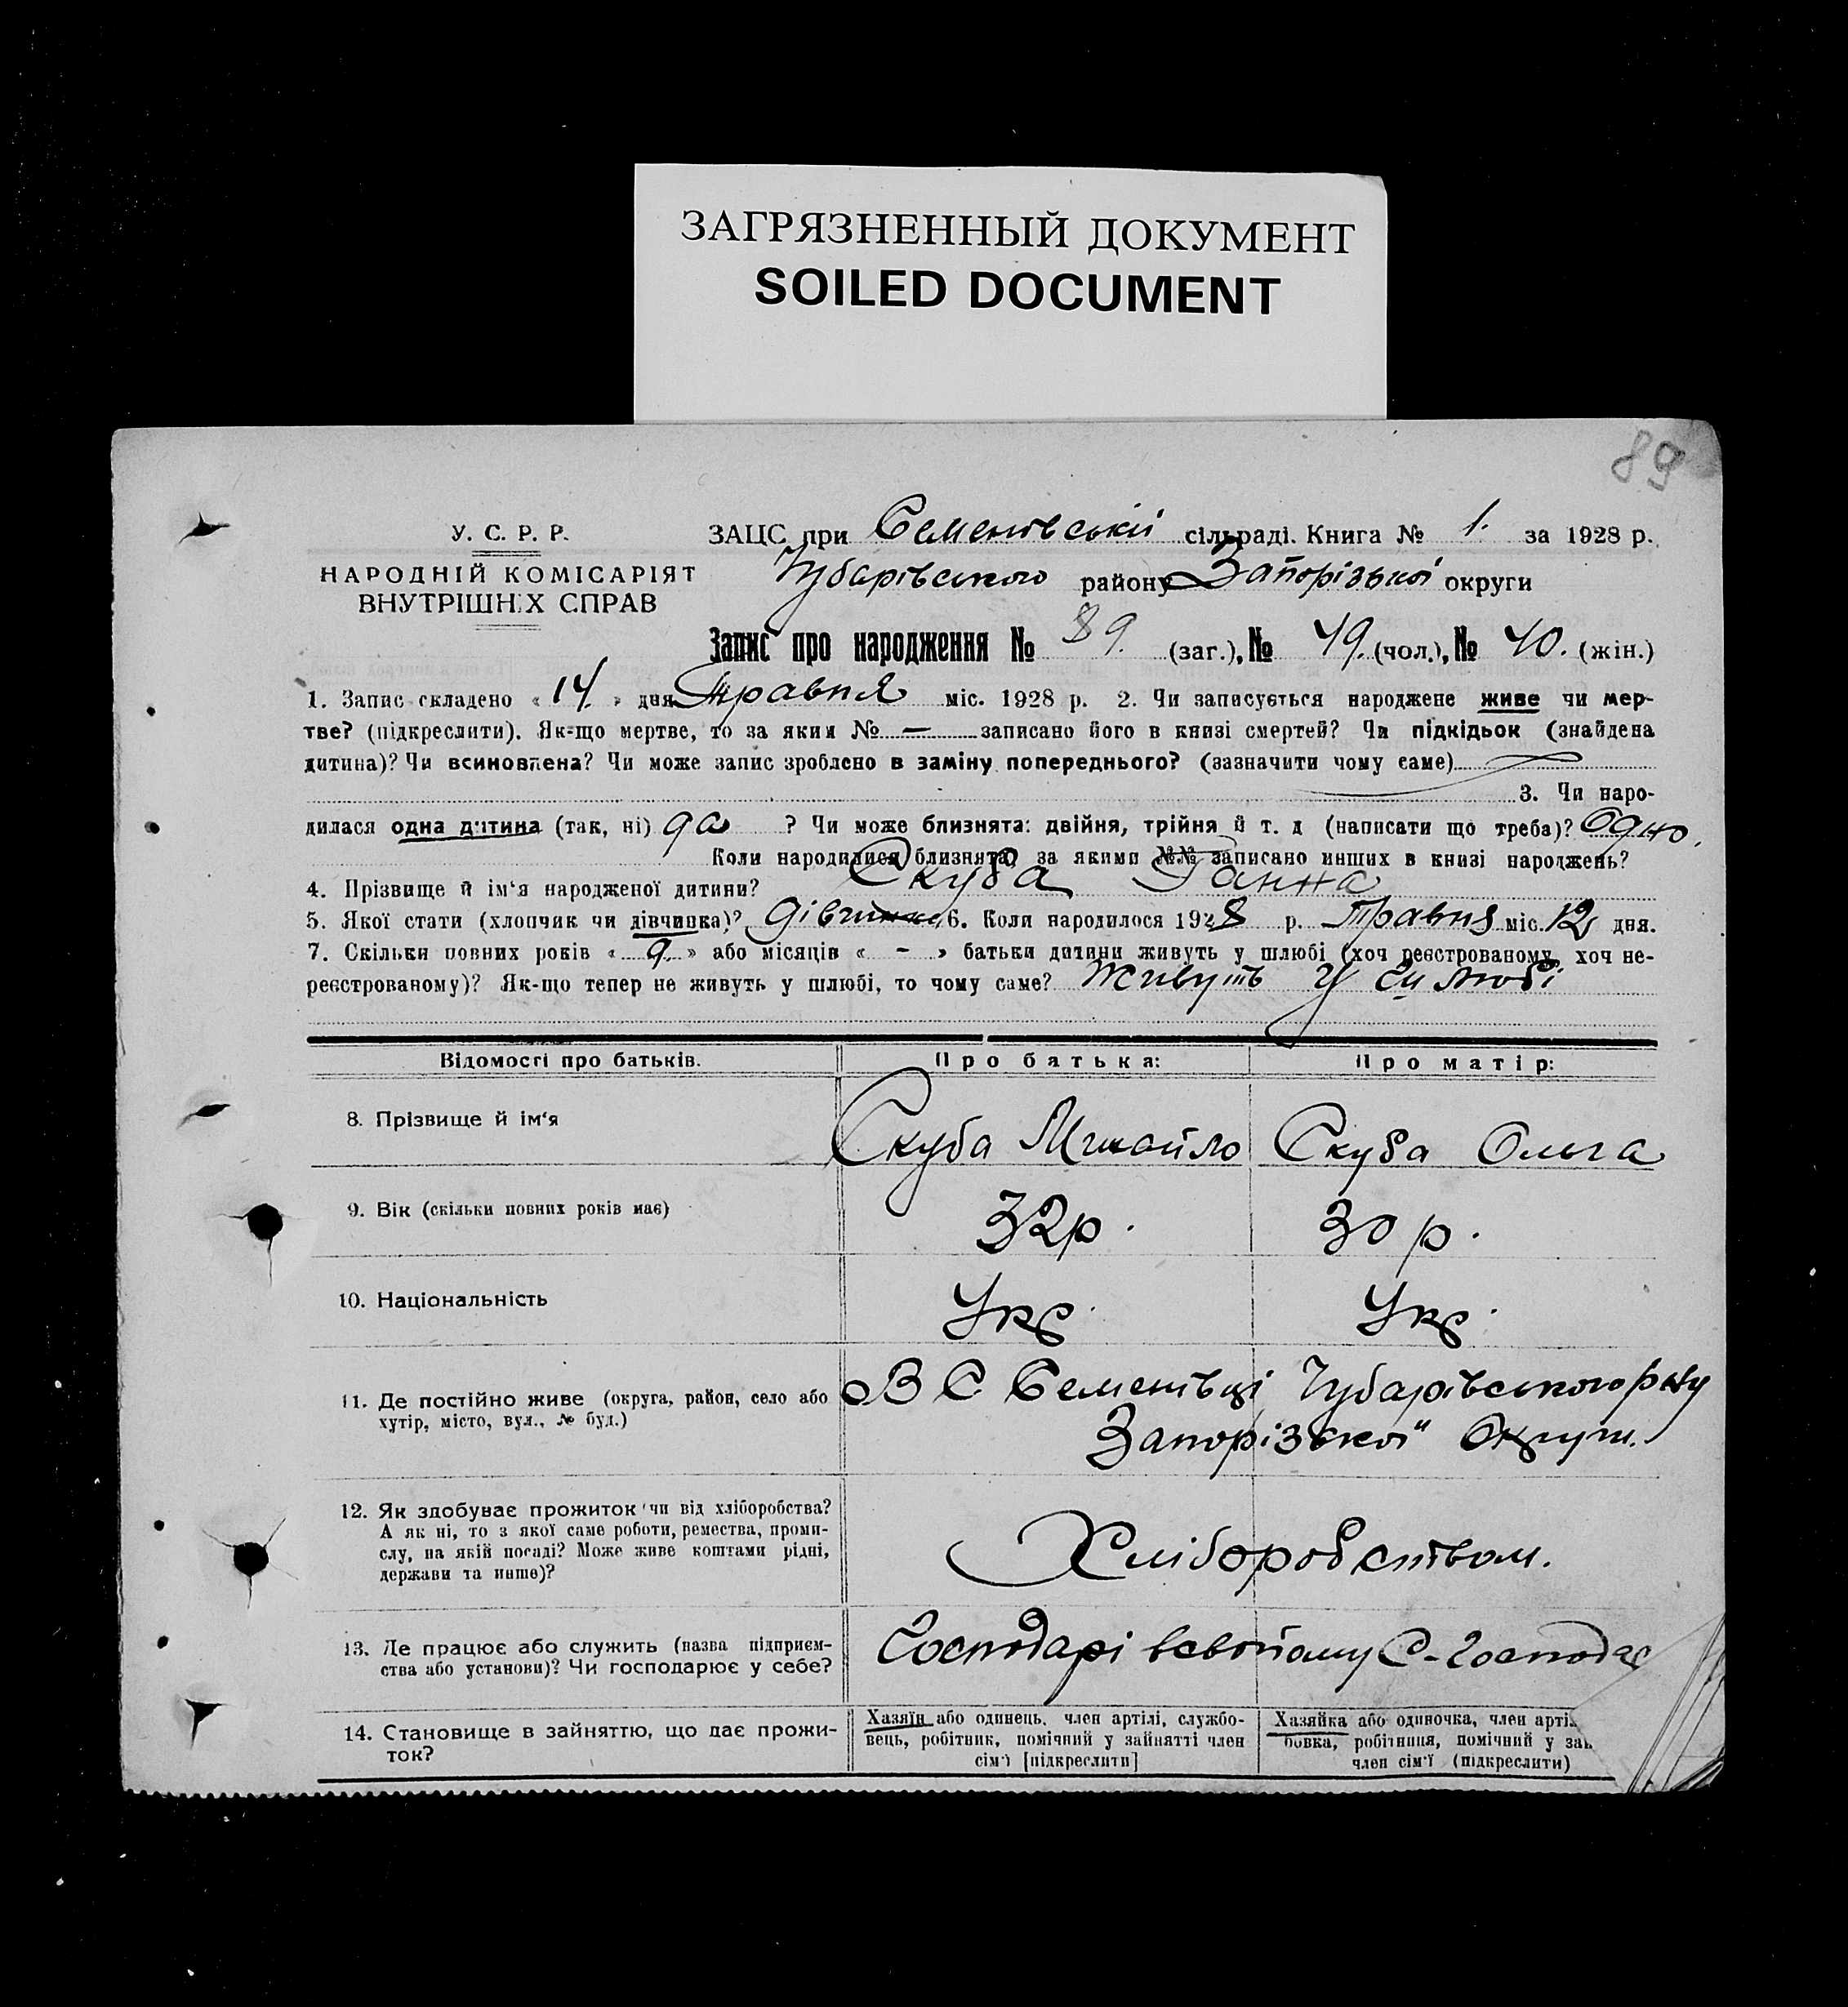 ЗАГРЯЗНЕННЫЙ ДОКУМЕНТ
SOILED DOCUMENT
89
У. С. Р. Р.
НАРОДНІЙ КОМІСАРІЯТ
ВНУТРІШНІХ СПРАВ
ЗАЦС при Семенівській сільраді. Книга № 1. за 1928 р.
Чубарівського району Запорізької округи
Запис про народження № 89. (заг.), № 49. (чол.), № 40. (жін.)
1. Запис складено « 14 » дня Травня міс. 1928 р. 2. Чи записується народжене живе чи мер-
тве? (підкреслити). Як-що мертве, то за яким № — записано його в книзі смертей? Чи підкідьок (знайдена
дитина)? Чи всиновлена? Чи може запис зроблено в заміну попереднього? (зазначити чому саме)
3. Чи наро-
дилася одна дитина (так, ні) да ? Чи може близнята: двійня, трійня й т. д (написати що треба)? Одно.
Коли народилися близнята, за якими №№ записано инших в книзі народжень?
4. Прізвище й ім‘я народженої дитини? Скуба Ганна
5. Якої стати (хлопчик чи дівчинка)? дівчинка 6. Коли народилося 1928 р. Травня міс. 12 дня.
7. Скільки повних років « 9. » або місяців « - » батьки дитини живуть у шлюбі (хоч реєстрованому, хоч не-
реєстрованому)? Як-що тепер не живуть у шлюбі, то чому саме? Живуть у шлюбі
Відомості про батьків.
Про батька:
Про матір:
8. Прізвище й ім‘я
Скуба Михайло
Скуба Ольга
9. Вік (скільки повних років має)
32р.
30 р.
10. Національність
Укр.
Укр.
11. Де постійно живе (округа, район, село або
хутір, місто, вул., № буд.)
В С Семенівці Чубарівського р-ну
Запорізької Округи.
12. Як здобуває прожиток чи від хліборобства?
А як ні, то з якої саме роботи, ремества, проми-
слу, на якій посаді? Може живе коштами рідні,
держави та инше)?
Хліборобством.
13. Де працює або служить (назва підприєм-
ства або установи)? Чи господарює у себе?
Господарі всвойому С-Господар
14. Становище в зайняттю, що дає прожи-
ток?
Хазяїн або одинець, член артілі, службо-
вець, робітник, помічний у зайнятті член
сім‘ї [підкреслити]
Хазяйка або одиночка, член арті
бовка, робітниця, помічний у за
член сім‘ї (підкреслити)